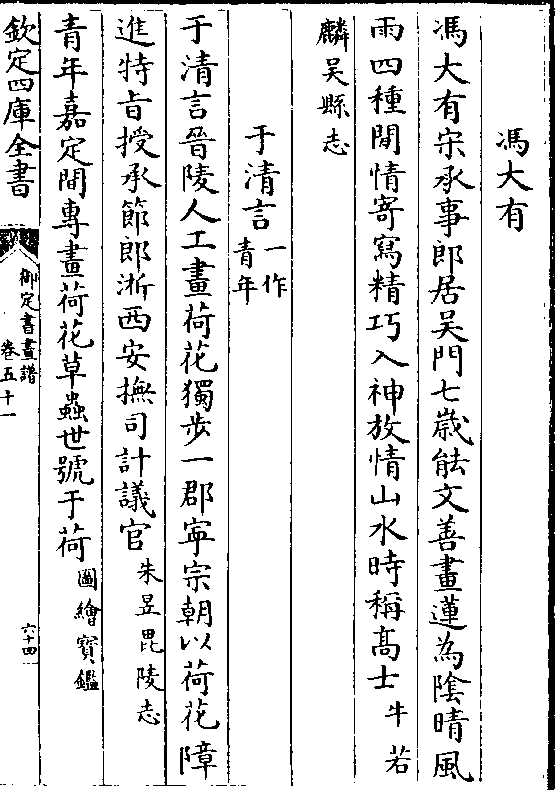 馮大有
馮大有宋承事郎居吳門七歲能文善畫蓮為陰晴風
雨四種閒情寄寫精巧入神放情山水時稱髙士牛若
麟吳縣志
于清言一作青年
于清言晉陵人工畫荷花獨步一郡寧宗朝以荷花障
進特旨授承節郎浙西安撫司計議官朱昱毘陵志
青年嘉定間專畫荷花草蟲世號于荷圖繪寳鑑
欽定四庫全書
御定書畫譜
卷五十一
六十四